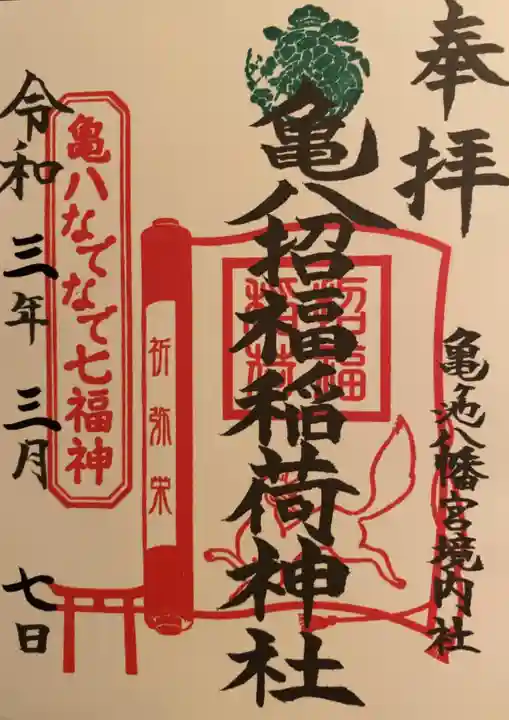 奉拝
亀ヶ池八幡宮境内社
亀八招福稲荷神社
招福
稲荷
祈弥栄
亀八なでなで七福神
令和三年三月七日